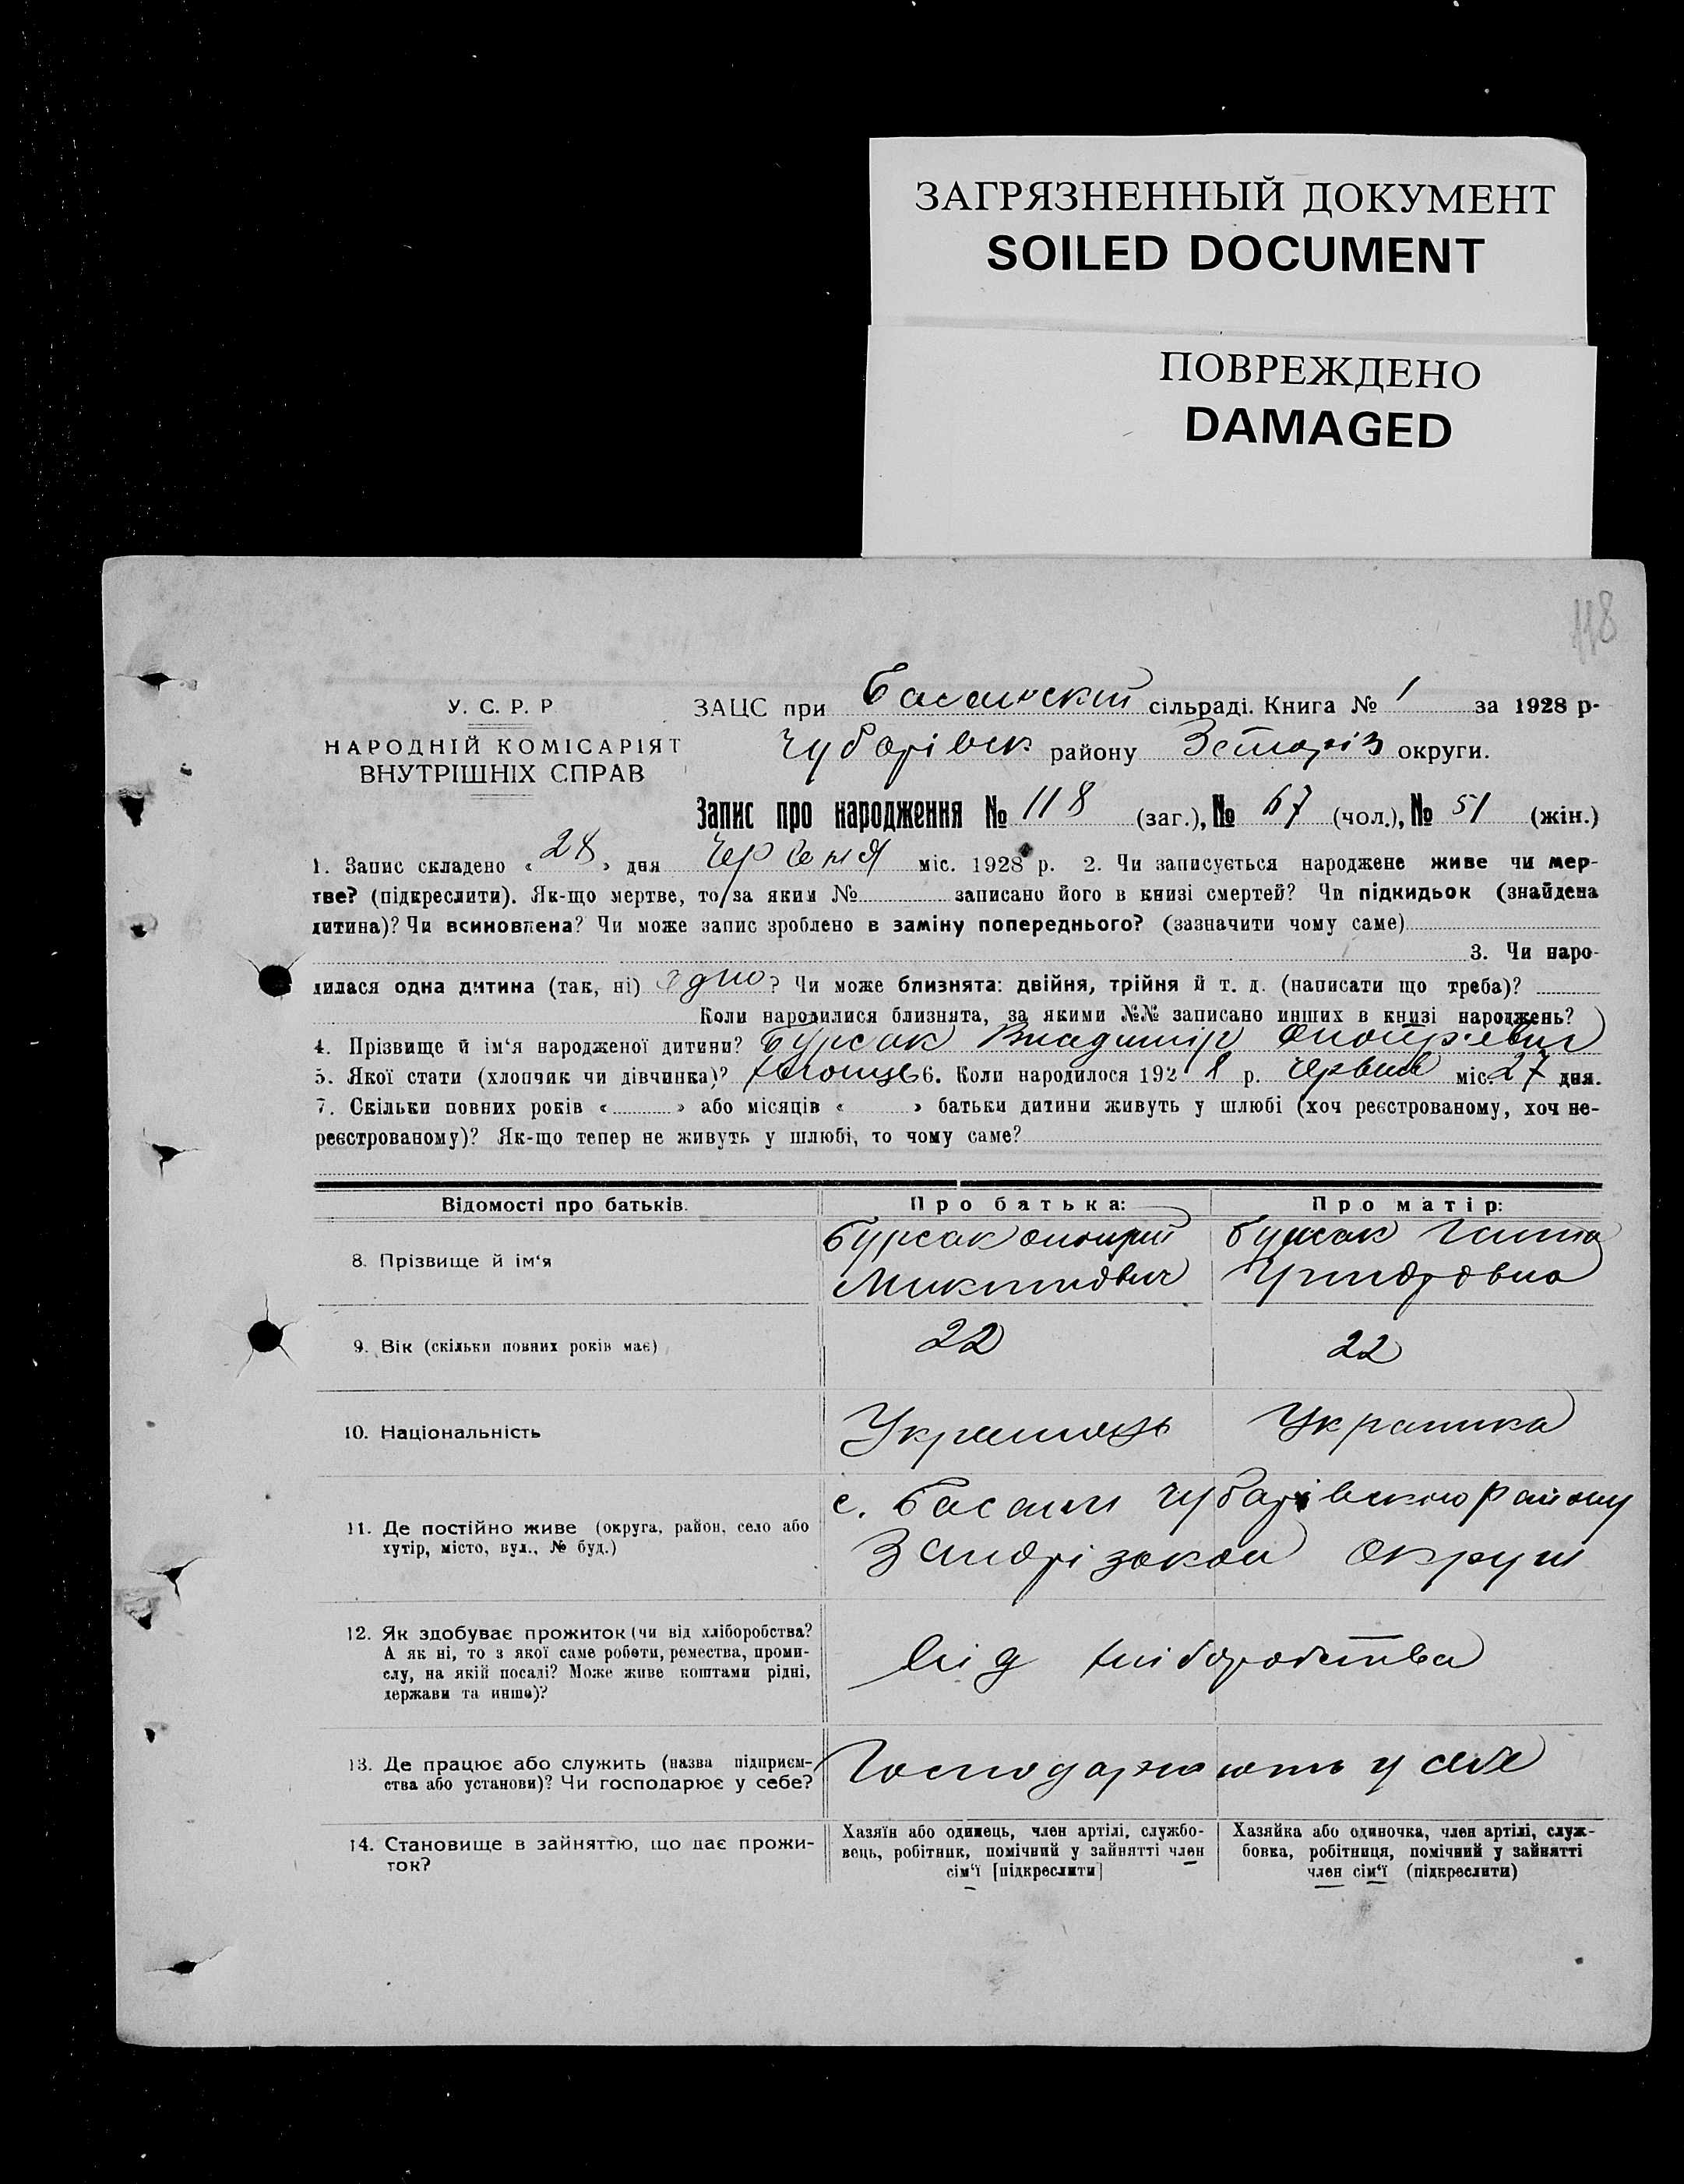 ЗАГРЯЗНЕННЫЙ ДОКУМЕНТ
SOILED DOCUMENT
ПОВРЕЖДЕНО
DAMAGED
118
У. С. Р. Р.
НАРОДНІЙ КОМІСАРІЯТ
ВНУТРІШНІХ СПРАВ
ЗАЦС при Басанській сільраді. Книга № 1 за 1928 р.
Чубарівськ району округи.
Запис про народження № 118 (заг.), № 67 (чол.), № 51 (жін.)
1. Запис складено « 28 » дня Червня міс. 1928 р. 2. Чи записується народжене живе чи мер-
тве? (підкреслити). Як-що мертве, то за яким № записано його в книзі смертей? Чи підкидьок (знайдена
дитина)? Чи всиновлена? Чи може запис зроблено в заміну попереднього? (зазначити чому саме)
3. Чи наро-
дилася одна дитина (так, ні) одно? Чи може близнята: двійня, трійня й т. д. (написати що треба)?
Коли народилися близнята, за якими №№ записано инших в книзі народжень?
4. Прізвище й ім‘я народженої дитини? Бурсак Владимір
5. Якої стати (хлопчик чи дівчинка)? хлопець 6. Коли народилося 192 8 р. Червня міс. 27 дня.
7. Скільки повних років « » або місяців « » батьки дитини живуть у шлюбі (хоч реєстрованому, хоч не-
реєстрованому)? Як-що тепер не живуть у шлюбі, то чому саме?
Відомості про батьків. Про батька: Про матір:
8. Прізвище й ім‘я Бурсак Бурсак Ганна
Микитович
9. Вік (скільки повних років має) 22 22
10. Національність Українець Українка
11. Де постійно живе (округа, район, село або
хутір, місто, вул., № буд.)
с. Басань Чубарівського району
Запорізької округи
12. Як здобуває прожиток (чи від хліборобства?
А як ні, то з якої саме роботи, ремества, проми-
слу, на якій посаді? Може живе коштами рідні,
держави та инше)?
від хліборобства
13. Де працює або служить (назва підприєм-
ства або установи)? Чи господарює у себе?
Господарюють у себе
14. Становище в зайняттю, що дає прожи-
ток?
Хазяїн або одинець, член артілі, службо-
вець, робітник, помічний у зайнятті член
сім‘ї [підкреслити]
Хазяйка або одиночка, член артілі, служ-
бовка, робітниця, помічний у зайнятті
член сім‘ї (підкреслити)